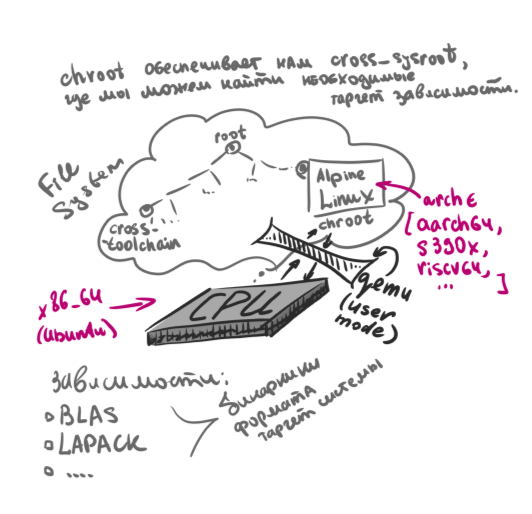 chroot обеспечивает нам cross-sysroot,
где мы можем найти необходимые
таргет зависимости.
File
System
root
Alpine
Linux
chroot
cross-
toolchain
arch ∈
[aarch64,
s390x,
riscv64,
...
]
qemu
(user
mode)
x86_64
(ubuntu)
CPU
зависимости:
BLAS
LAPACK
....
бинарники
формата
таргет системы